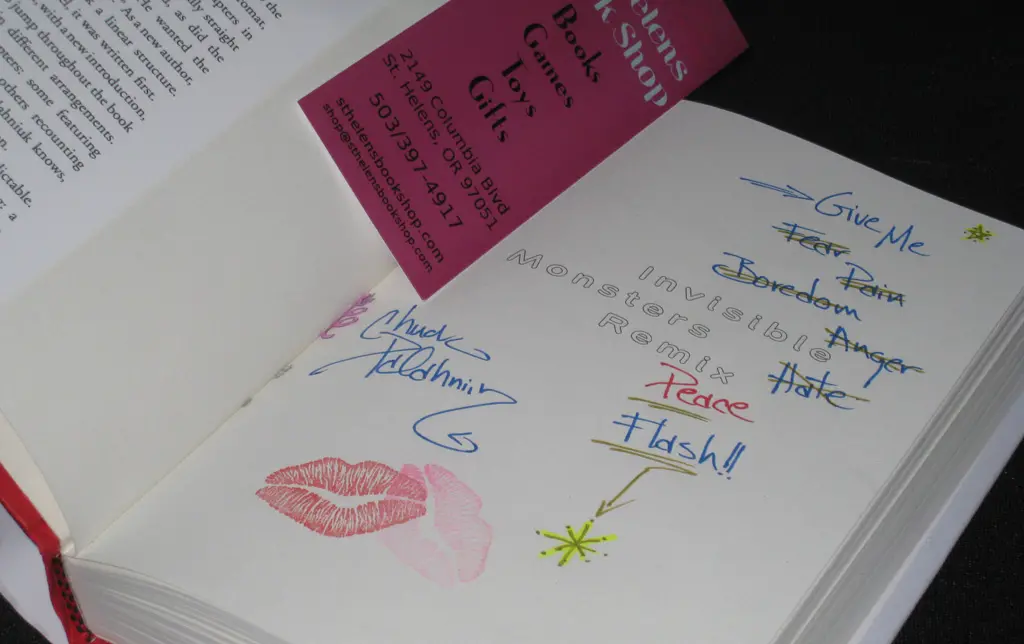 pters in
omat,
ally straight
as did the
a linear structure.
As a new author,
He wanted the
it was written first.
with a new introduction,
jump throughout the book
different arrangements.
pters: some featuring
others recounting
hniuk knows,
n.
dictable.
r: a
Helens
k Shop
Books
Games
Toys
Gifts
2149 Columbia Blvd
St. Helens, OR 97051
503/397-4917
sthelensbookshop.com
shop@sthelensbookshop.com
→ Give Me
Fear
Pain
Boredom
Anger
Hate
Invisible
Monsters
Remix
Peace
Flash!!
Chuck
Palahniuk